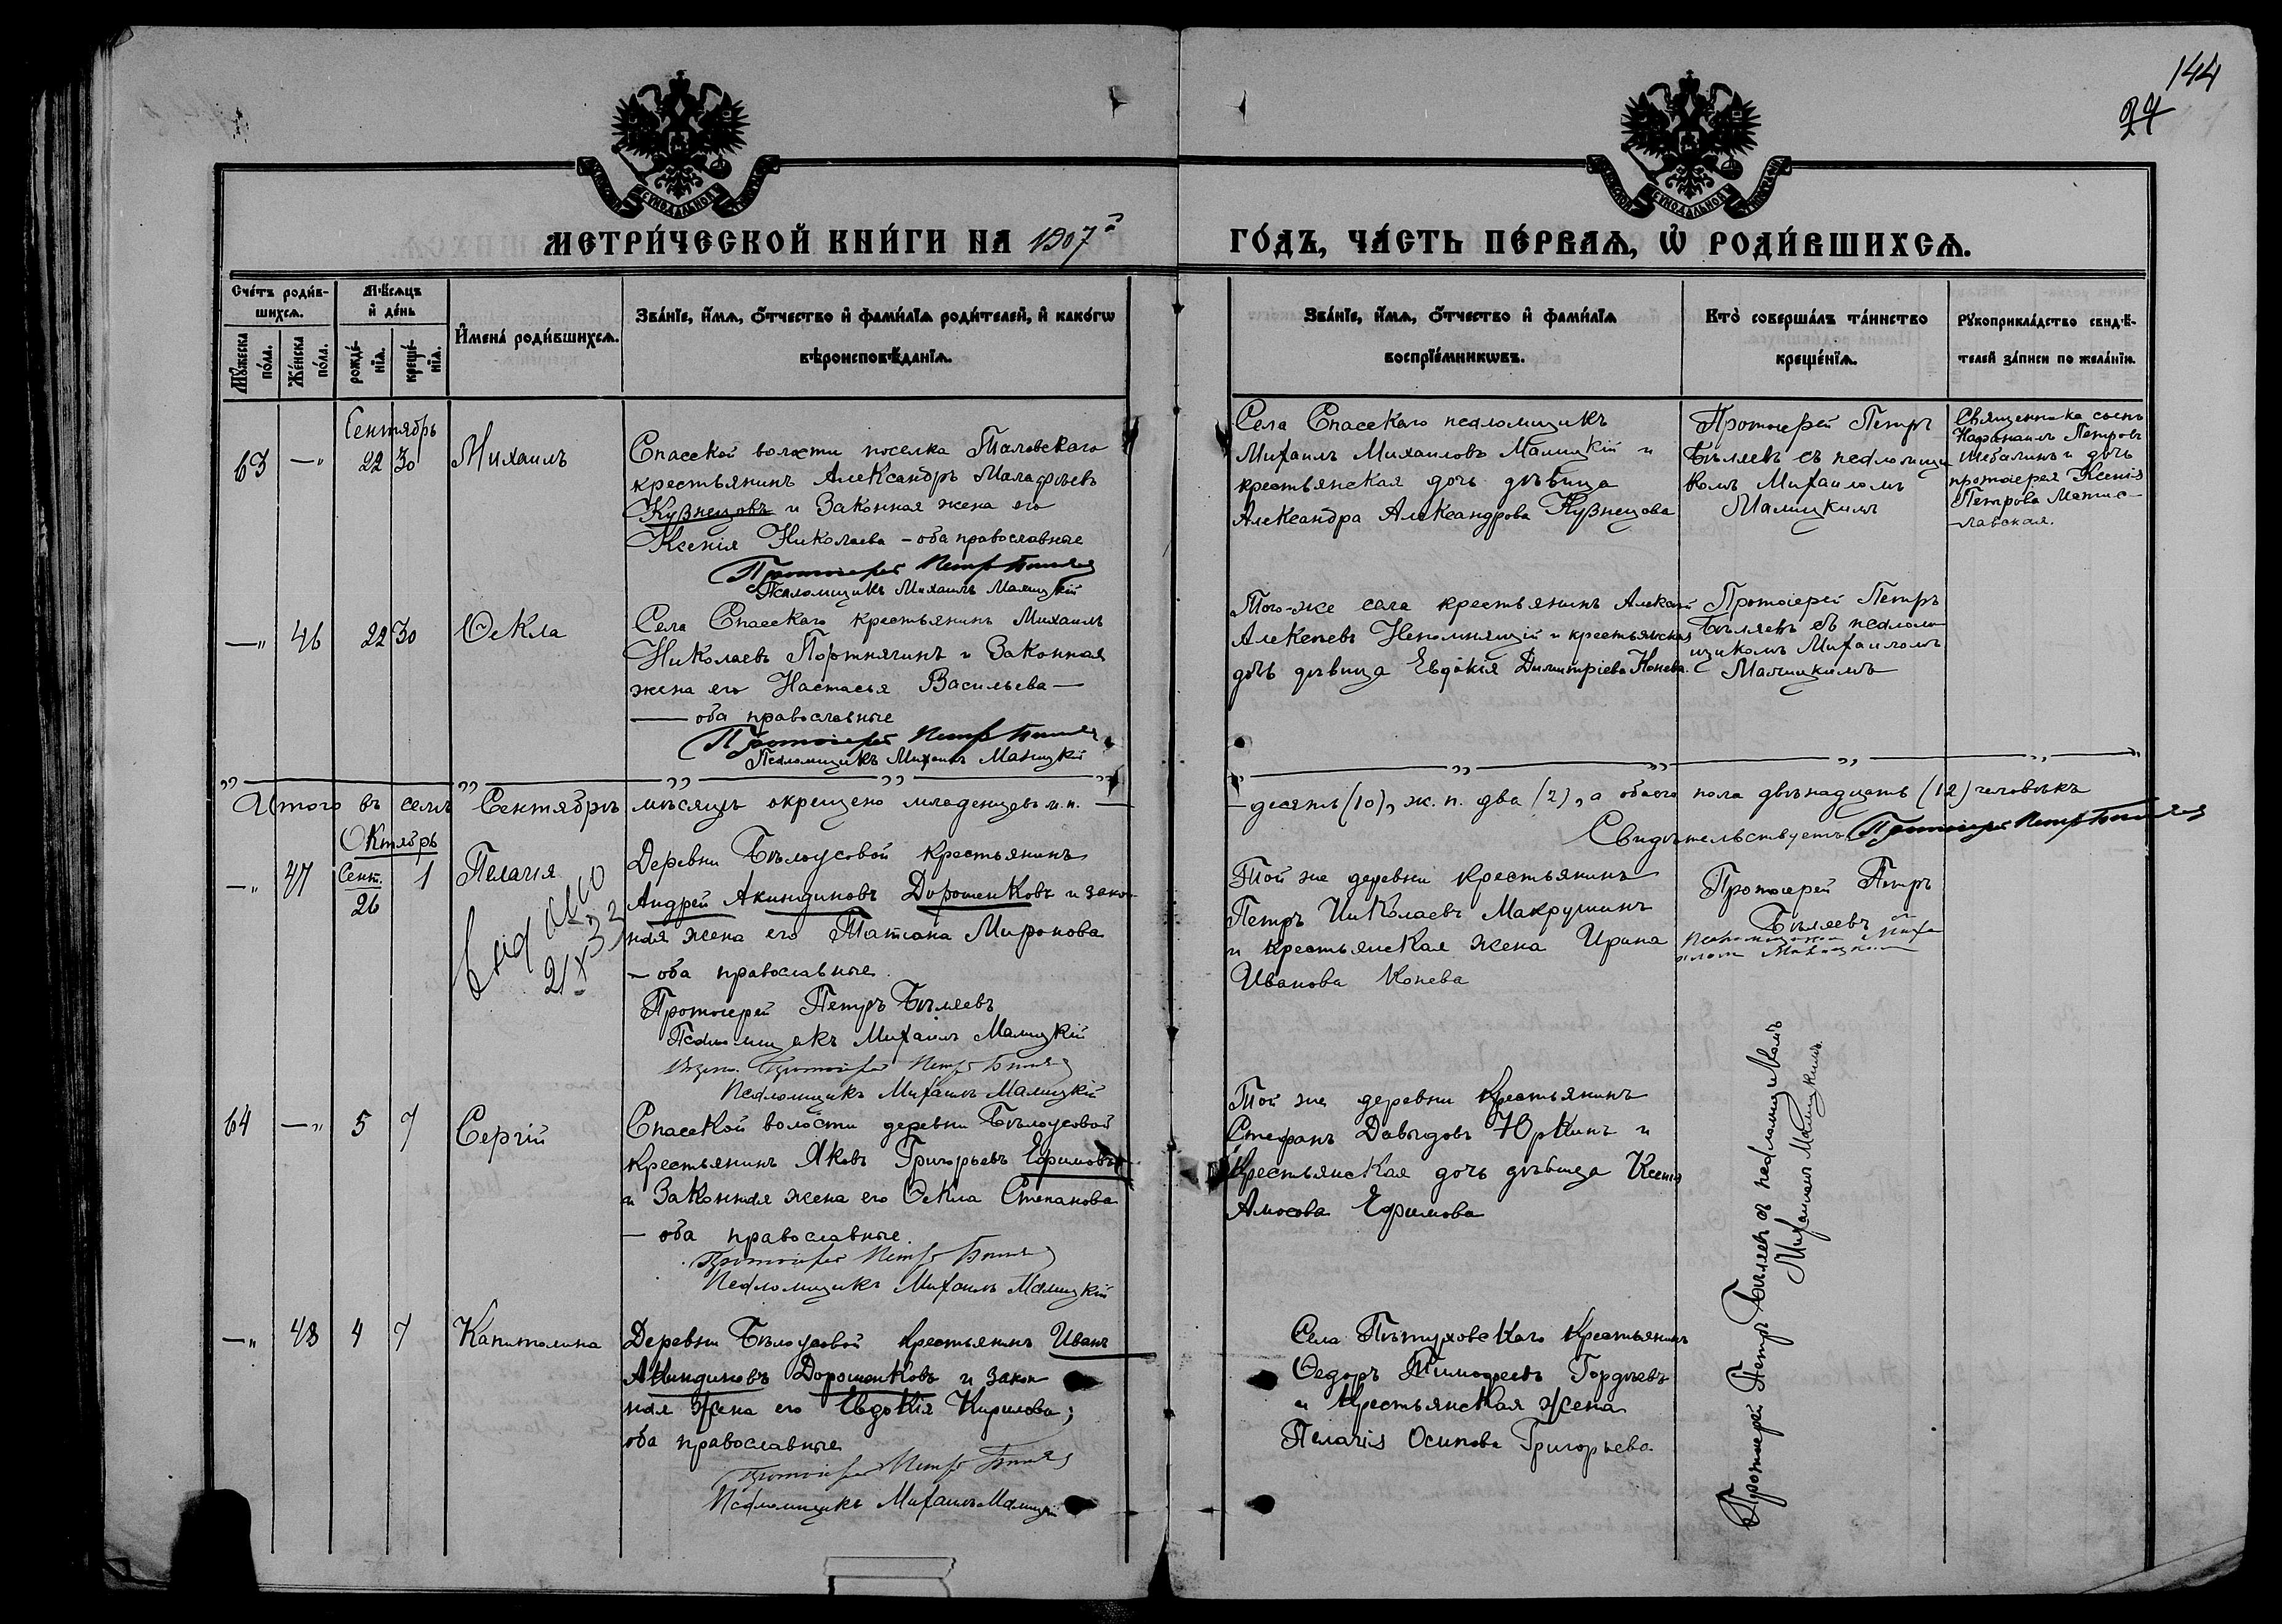 144
24
МЕТРИ́ЧЕСКОЙ КНИ́ГИ НА 1907й ГО́ДЪ, ЧА́СТЬ ПЕ́РВАѦ, Ѡ҆ РОДИ́ВШИХСѦ.
Сче́тъ роди́в-
шихсѧ.
Мꙋ́жеска
по́ла.
Же́нска
по́ла.
Мѣ́сѧцъ
и҆ де́нь
рожде́-
нїѧ.
креще́-
нїѧ.
И҆мена̀ роди́вшихсѧ.
Зва́нїе, и҆́мѧ, ѻ҆́тчество и҆ фами́лїѧ роди́телей, и҆ како́гѡ
вѣроисповѣ́данїѧ.
Зва́нїе, и҆́мѧ, ѻ҆́тчество и҆ фами́лїѧ
воспрїе́мникѡвъ.
Кто̀ соверша́лъ та́инство
креще́нїѧ.
Рꙋкоприкла́дство свидѣ́-
телей за́писи по жела́нїю.
Сентябрь
63 —„ 22 30 Михаилъ
Спасской волости поселка Таловскаго
крестьянинъ Александръ Малафѣевъ
Кузнецовъ и законная жена его
Ксенія Николаева – оба православные
Протоіерей Петръ Бѣляевъ
Псаломщикъ Михаилъ Малицкій
Села Спасскаго псаломщикъ
Михаилъ Михаиловъ Малицкій и
крестьянская дочь дѣвица
Александра Александрова Кузнецова
Протоіерей Петръ
Бѣляевъ съ псаломщи
комъ Михаиломъ
Малицкимъ
Священника сынъ
Нафанаилъ Петровъ
Шебалинъ и дочь
протоіерея Ксенія
Петрова
—„ 46 22 30 Ѳекла
Села Спасскаго крестьянинъ Михаилъ
Николаевъ Портнягинъ и законная
жена его Настасья Васильева —
— оба православные
Протоіерей Петръ Бѣляевъ
Псаломщикъ Михаилъ Малицкій
Того-же села крестьянинъ Алексѣй
Алексѣевъ Непомнящій и крестьянская
дочь дѣвица Евдокія Димитріева Конева.
Протоіерей Петръ
Бѣляевъ съ псаломщ
щикомъ Михаиломъ
Малицкимъ
Итого въ семъ Сентябрѣ мѣсяцѣ окрещено младенцевъ м. п. — десять (10), ж. п. два (2), а обоего пола двѣнадцать (12) человѣкъ
Свидѣтельствуетъ Протоіерей Петръ Бѣляевъ
Октябрь
—„ 47 Сент. 26 1 Пелагія
21 X 33
Деревни Бѣлоусовой крестьянинъ
Андрей Акиндиновъ Дорошенковъ и закон
ная жена его Татіана Миронова
— оба православные.
Протоіерей Петръ Бѣляевъ
Псаломщикъ Михаилъ Малицкій
Протоіерей Петръ Бѣляевъ
Псаломщикъ Михаилъ Малицкій
Той же деревни крестьянинъ
Петръ Николаевъ Макрушинъ
и крестьянская жена Ирина
Иванова Конева
Протоіерей Петръ
Бѣляевъ съ
псаломщикомъ Миха
иломъ Малицкимъ
64 —„ 5 7 Сергій
Спасской волости деревни Бѣлоусовой
крестьянинъ Яковъ Григорьевъ Ефимовъ
и законная жена его Ѳекла Степанова
— оба православные.
Протоіерей Петръ Бѣляевъ
Псаломщикъ Михаилъ Малицкій
Той же деревни крестьянинъ
Стефанъ Давыдовъ Юркинъ и
крестьянская дочь дѣвица Ксенія
Амосова Ефимова
Протоіерей Петръ Бѣляевъ съ псаломщикомъ
Михаиломъ Малицкимъ.
—„ 48 4 7 Капитолина
Деревни Бѣлоусовой крестьянинъ Иванъ
Акиндиновъ Дорошенковъ и закон
ная жена его Евдокія Кирилова;
оба православные
Протоіерей Петръ Бѣляевъ
Псаломщикъ Михаилъ Малицкій
Села Пѣтуховскаго крестьянинъ
Ѳедоръ Тимофеевъ Гордѣевъ
и крестьянская жена
Пелагія Осипова Григорьева